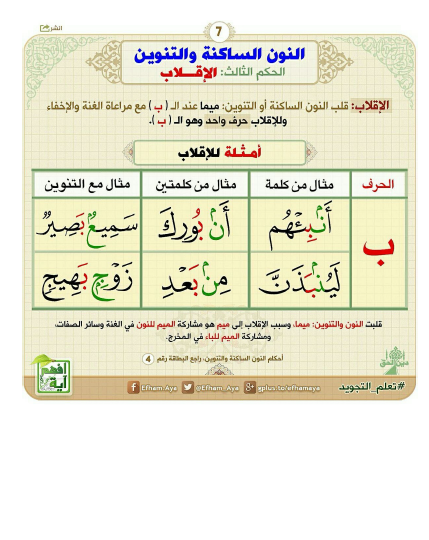 7
النشر
النون الساكنة والتنوين
الحكم الثالث: الإقـــلاب
الإقلاب: قلب النون الساكنة أو التنوين: ميما عند الـ ( ب ) مع مراعاة الغنة والإخفاء
وللإقلاب حرف واحد وهو الـ ( ب ).
أمـثـلة للإقلاب
الحرف مثال من كلمة مثال من كلمتين مثال مع التنوين
ب
أَنۢبِئْهُم أَنۢ بُورِكَ سَمِيعٌۢ بَصِيرٌ
لَيُنۢبَذَنَّ مِنۢ بَعْدِ زَوْجٍۭ بَهِيجٍ
قلبت النون والتنوين: ميما، وسبب الإقلاب إلى ميم هو مشاركة الميم للنون في الغنة وسائر الصفات،
ومشاركة الميم للباء في المخرج.
أحكام النون الساكنة والتنوين، راجع البطاقة رقم 4
افهم
آية
Efham.Aya @Efham_Aya gplus.to/efhamaya
#تعلم_التجويد